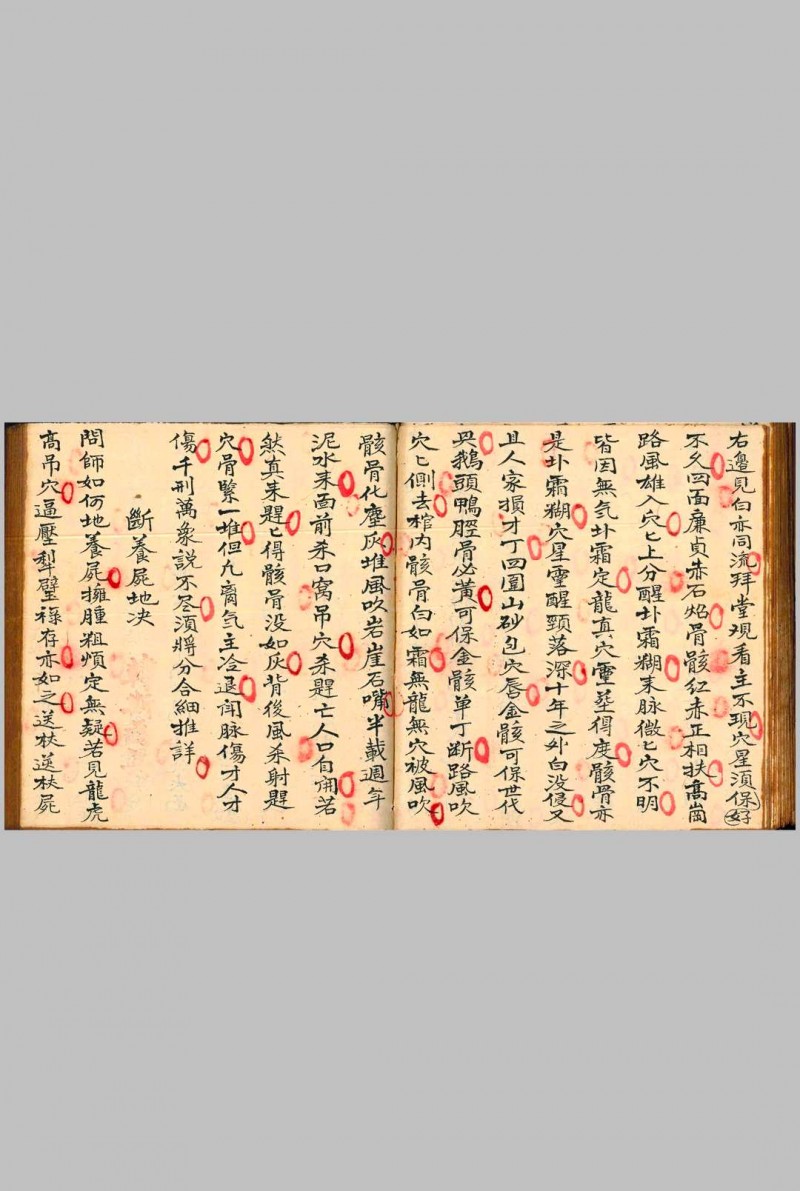 右邊見白亦同流拜堂观看主不現穴星須保好
不久四面廉貞赤石焰骨骸紅赤正相扶高崗
路風雄入穴匕上分醒圤霜糊来脉微匕穴不明
皆因無气圤霜定龍真穴靈塟得度骸骨亦
是圤霜糊穴星靈醒頸落深十年之外白没侵又
且人家損才丁四圍山砂包穴唇金骸可保世代
興鵝頭鴨脛骨必黃可保金骸单丁断路風吹
穴匕側去棺内骸骨白如霜無龍無穴被風吹
骸骨化塵灰堆風吹岩崖石嘴半載週年
泥水来面前杀口窝吊穴杀踀亡人口自開若
然真来踀匕得骸骨没如灰背後風杀射踀
穴骨緊一堆但凢离气主冷退開脉傷才人才
傷千刑萬象說不尽須將分合細推詳
断養屍地决
問師如何地養屍擁腫粗煩定無疑若見龍虎
高吊穴逼壓犁壁祿存亦如之送杖送杖屍